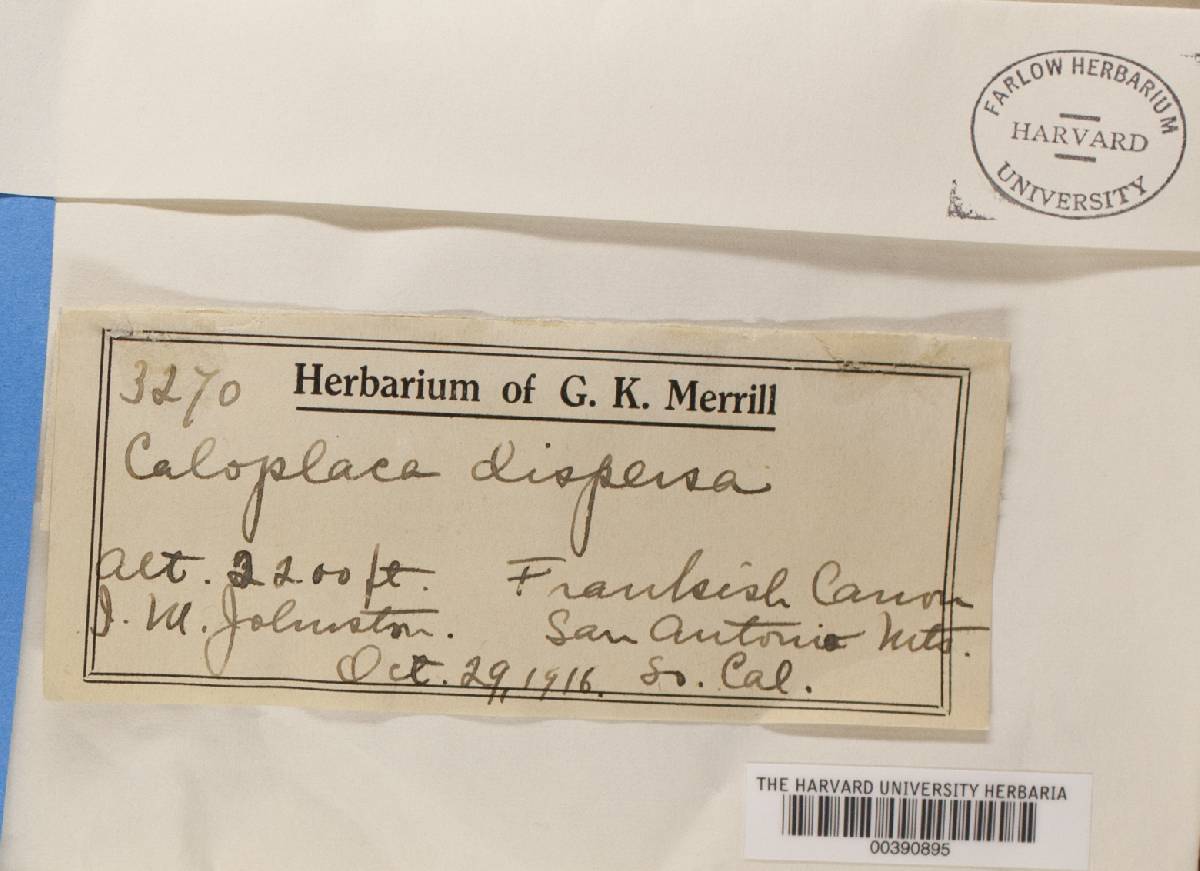 FARLOW HERBARIUM
HARVARD
UNIVERSITY
3270 Herbarium of G. K. Merrill
Caloplaca dispersa
Alt. 2200 ft. Frankish Canon
I. M. Johnston. San Antonio Mts.
Oct. 29, 1916. So. Cal.
THE HARVARD UNIVERSITY HERBARIA
00390895